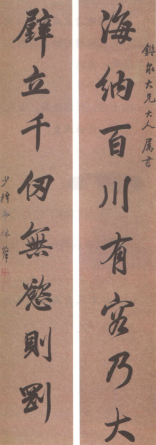 大兄大人屬書
海納百川有容乃大
壁立千仞無慾則剛
少穆弟林